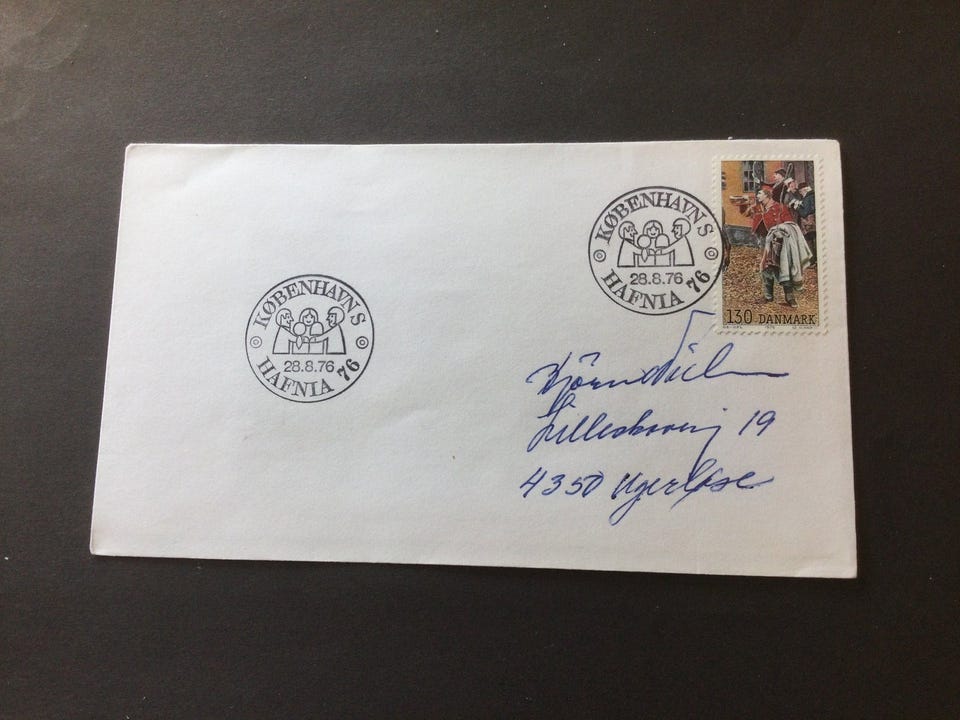 KØBENHAVNS
28.8.76
HAFNIA 76
KØBENHAVNS
28.8.76
HAFNIA 76
130 DANMARK
1976
Bjørn
19
4350 Ugerløse